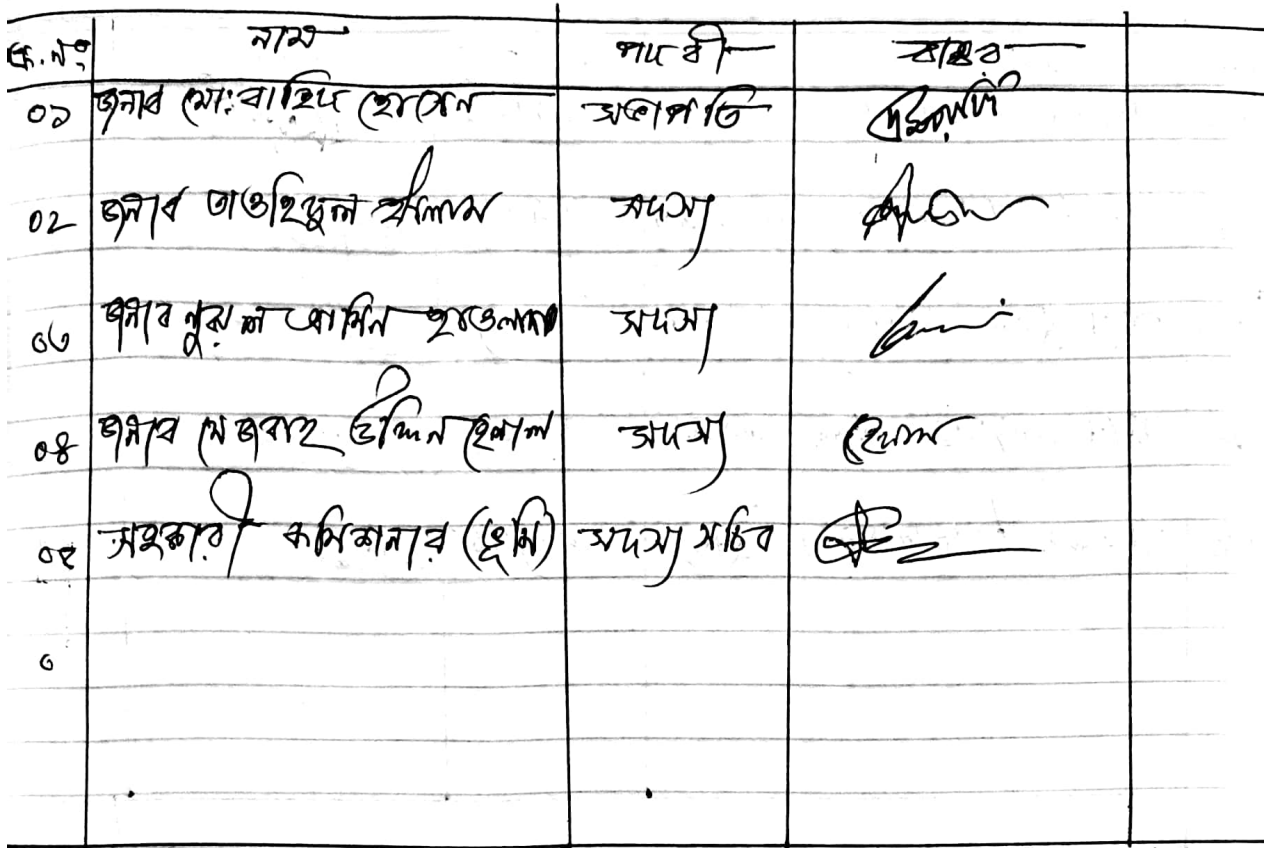 ক্র. নং নাম পদবী স্বাক্ষর
০১ জনাব মোঃ বাহিদ হোসেন সভাপতি
০২ জনাব তাওহিদুল ইসলাম সদস্য
০৩ জনাব নুরুল আমিন হাওলাদার সদস্য
০৪ জনাব মেজবাহ উদ্দিন হেলাল সদস্য হেলাল
০৫ সহকারী কমিশনার (ভূমি) সদস্য সচিব
০